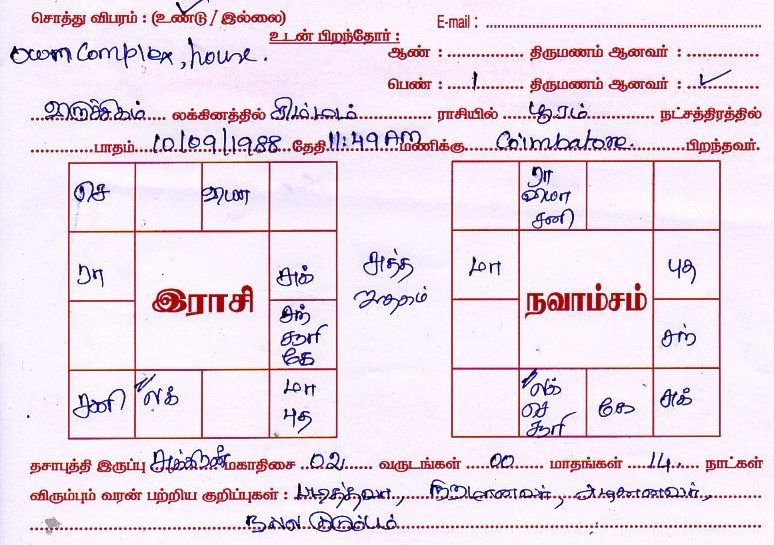 சொத்து விபரம் : (உண்டு / இல்லை) E-mail : 
own complex, house. உடன் பிறந்தோர் :
ஆண் : திருமணம் ஆனவர் :
பெண் : 1 திருமணம் ஆனவர் : ✓
விருச்சிகம் லக்கினத்தில் சிம்மம் ராசியில் பூரம் நட்சத்திரத்தில்
பாதம் 10/09/1988 தேதி 11:49 AM மணிக்கு Coimbatore. பிறந்தவர்.
செ
ரா
அக்
சந்
சூரி
கே
சனி
லக்
மா
புத
இராசி
சுத்த
ஜாதகம்
ரா
வியா
சனி
மா
புத
சந்
லக்
செ
சூரி
கே
அக்
நவாம்சம்
தசாபுத்தி இருப்பு மகாதிசை 02 வருடங்கள் 00 மாதங்கள் 14 நாட்கள்
விரும்பும் வரன் பற்றிய குறிப்புகள் : படித்தவர்,
நல்ல குடும்பம்